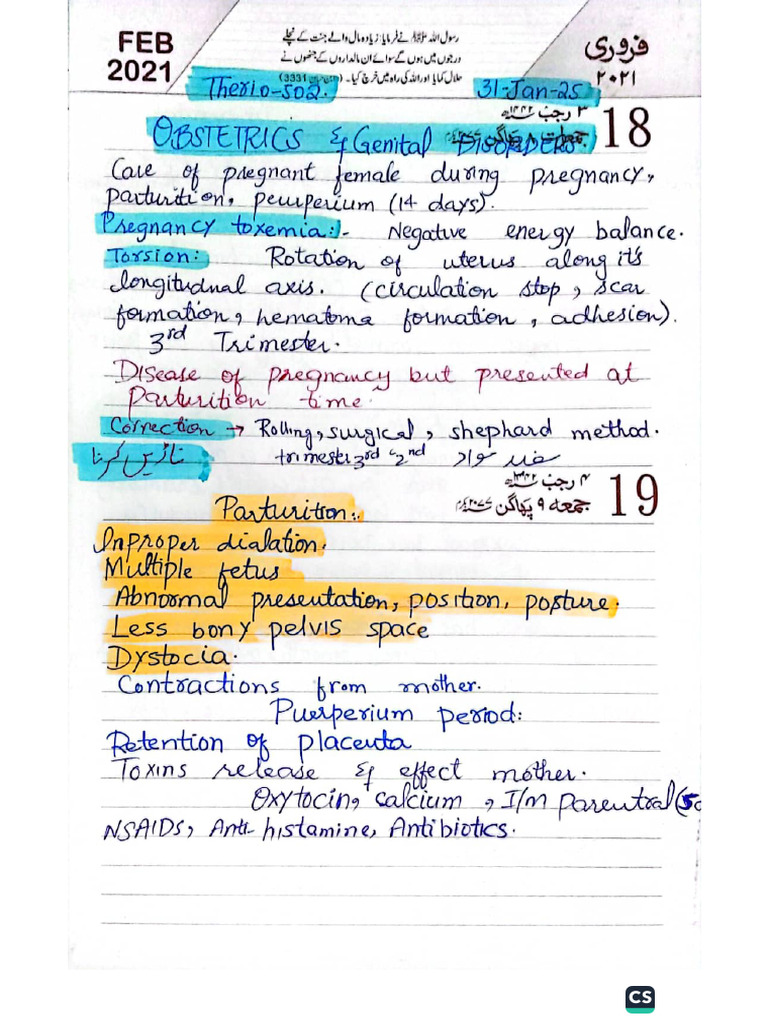 FEB
2021
رسول اللہ ﷺ نے فرمایا: زیادہ مال والے جنت کے نچلے
درجوں میں ہوں گے سوائے ان مالداروں کے جنھوں نے
حلال کمایا اور اللہ کی راہ میں خرچ کیا۔
فروری
۲۰۲۱
Therio-502.
31-Jan-25
۳ رجب
18
OBSTETRICS & Genital DISORDERS:
Care of pregnant female during pregnancy,
parturition, peurperium (14 days).
Pregnancy toxemia:- Negative energy balance.
Torsion: Rotation of uterus along it's
longitudnal axis. (circulation stop, scar
formation, hematoma formation, adhesion).
3rd Trimester.
Disease of pregnancy but presented at
Parturition time.
Correction → Rolling, surgical, shephard method.
trimester 3rd 2nd
۴ رجب
19
جمعہ ۹ پھاگن
Parturition:.
Inproper dialation.
Multiple fetus
Abnormal presentation, position, posture.
Less bony pelvis space
Dystocia.
Contractions from mother.
Puerperium period:
Retention of placenta
Toxins release & effect mother.
Oxytocin, calcium, I/M Parentral (50
NSAIDs, Anti-histamine, Antibiotics.
CS